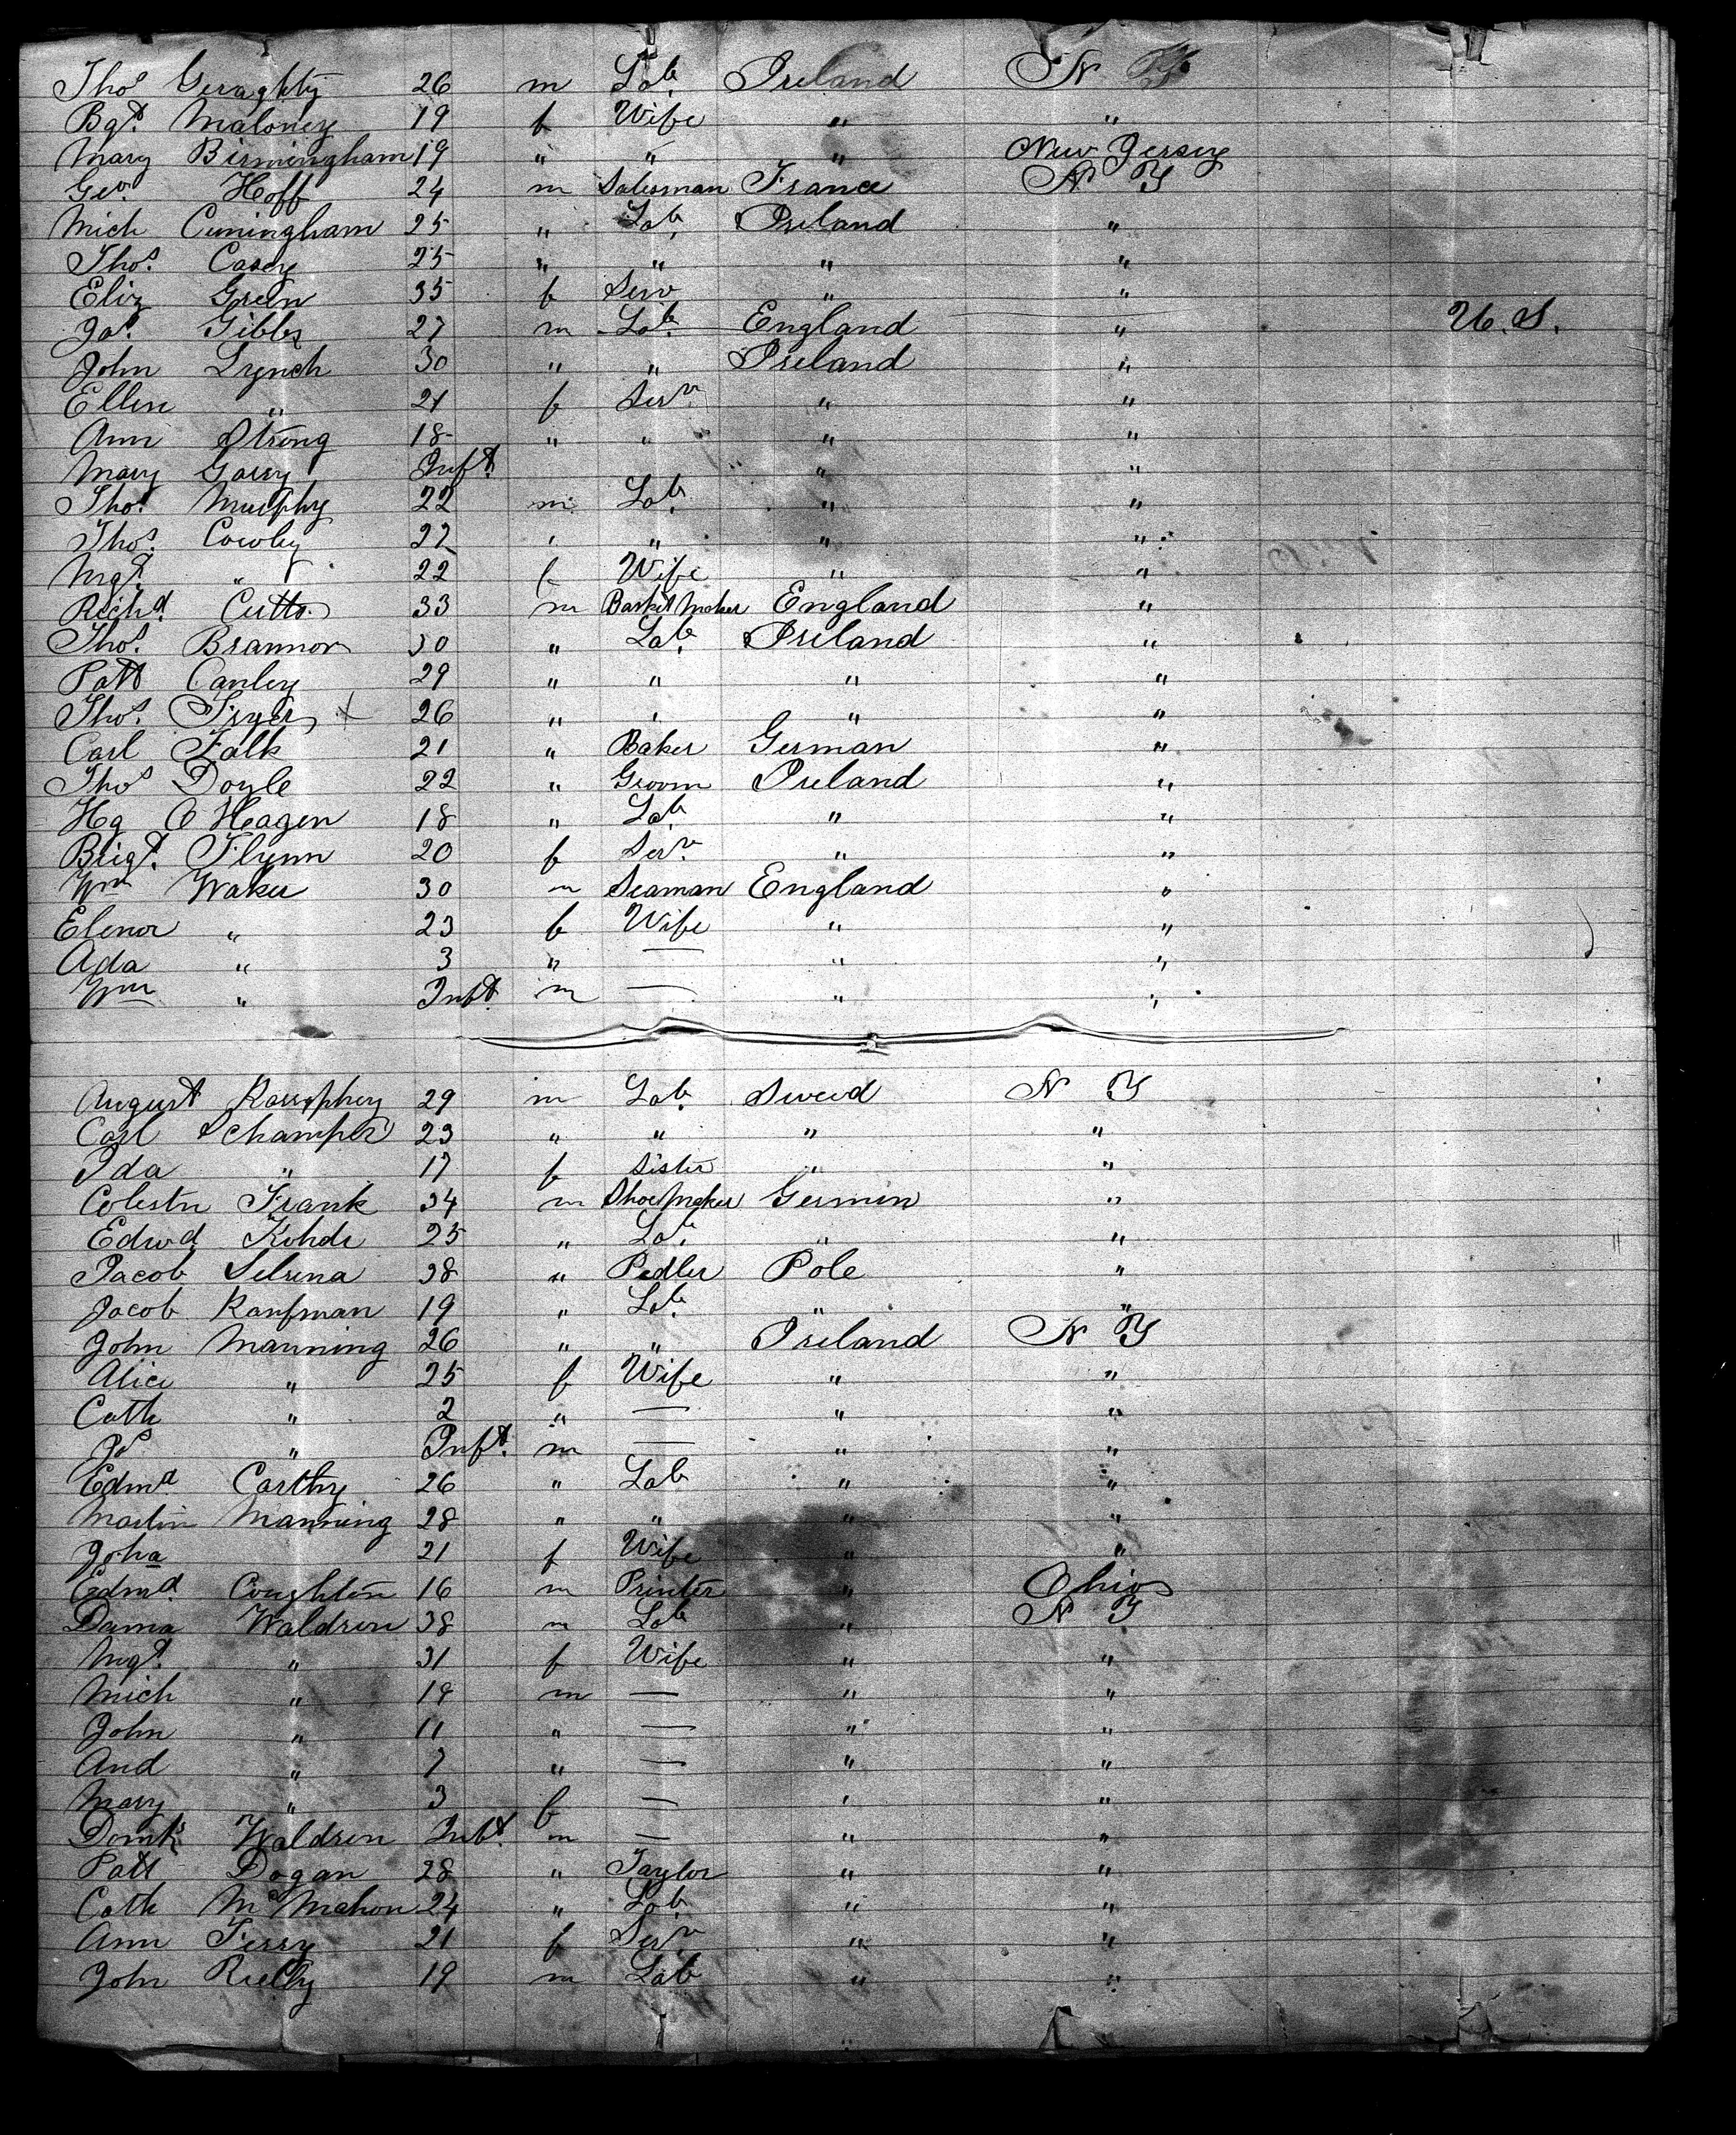 Thos Geraghty 26 m Lab. Ireland N Y
Bgt. Maloney 19 f Wife " "
Mary Birmingham 19 " " " New Jersey
Geo. Hoff 24 m Salesman France N Y
Mich Cuningham 25 " Lab. Ireland "
Thos. Casey 25 " " " "
Eliz Green 35 f Serv " "
Jas. Gibbs 27 m Lab. England " U. S.
John Lynch 30 " " Ireland "
Ellen " 21 f Servt. " "
Ann Strong 18 " " " "
Mary Garry Inft. " "
Thos. Murphy 22 m Lab. " "
Thos. Cowley 22 " " " "
Mgt. " 22 f Wife " "
Richd. Cutts 33 m Basket Maker England "
Thos. Brannon 30 " Lab. Ireland "
Patt Canley 29 " " " "
Thos. Fryer 26 " " " "
Carl Falk 21 " Baker German "
Thos Doyle 22 " Groom Ireland "
Hg O Hagen 18 " Lab " "
Brigt. Flynn 20 f Serv. " "
Wm Waker 30 m Seaman England "
Elenor " 23 f Wife " "
Ada " 3 " — " "
Wm " Inft m — " "
August 29 m Lab. Sweed N Y
Carl 23 " " " "
Ida " 17 f Sister " "
Celestn Frank 34 m Shoe Maker Germin "
Edwd Kohde 25 " Lab. " "
Jacob Selsina 38 " Pedler Pole "
Jacob Kaufman 19 " Lab. " "
John Manning 26 " " Ireland N Y
Alice " 25 f Wife " "
Cath " 2 " — " "
Js " Inft. m — " "
Edmd Carthy 26 " Lab " "
Martin Manning 28 " " " "
Joha 21 f Wife " "
Edmd. Coughlen 16 m Printer " Ohio
Dama Waldren 38 m Lab " N Y
Mgt. " 31 f Wife " "
Mich " 19 m — " "
John " 11 " — " "
And " 7 " — " "
Mary " 3 f — " "
Domk Waldren Inft. m — " "
Patt Dogan 28 " Taylor " "
Cath McMahon 24 " Lab " "
Ann Ferry 21 f Serv " "
John Rielly 19 m Lab " "